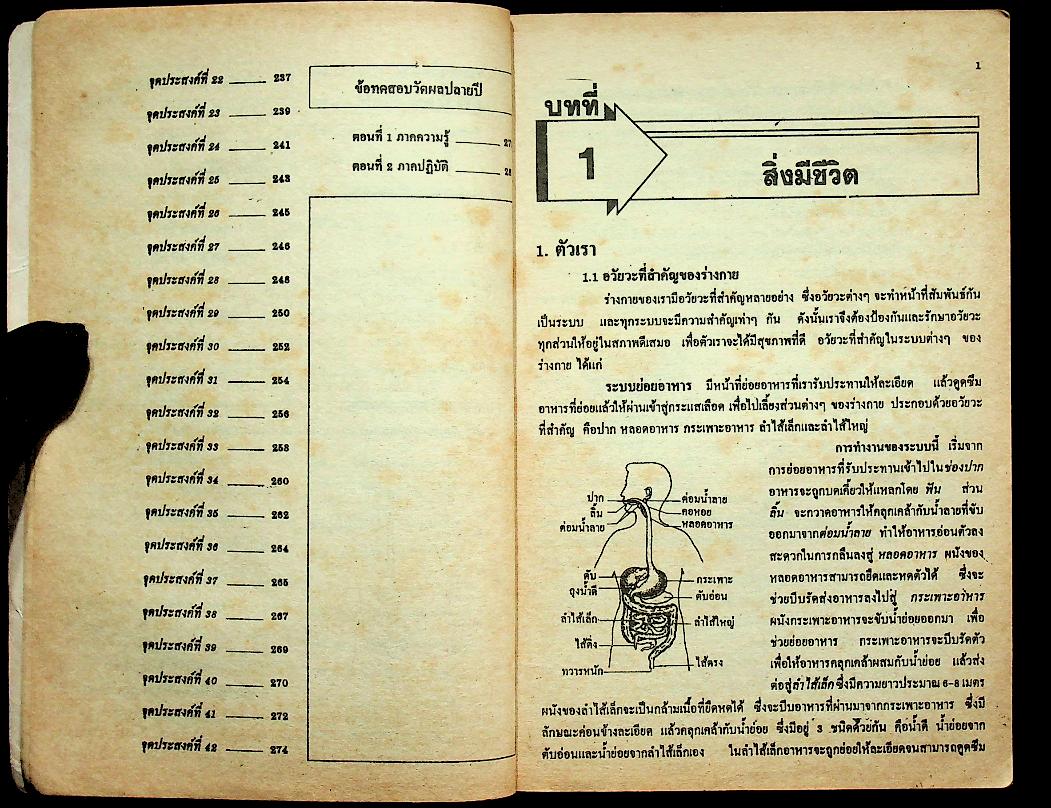 จุดประสงค์ที่ 22 237
จุดประสงค์ที่ 23 239
จุดประสงค์ที่ 24 241
จุดประสงค์ที่ 25 243
จุดประสงค์ที่ 26 245
จุดประสงค์ที่ 27 246
จุดประสงค์ที่ 28 248
จุดประสงค์ที่ 29 250
จุดประสงค์ที่ 30 252
จุดประสงค์ที่ 31 254
จุดประสงค์ที่ 32 256
จุดประสงค์ที่ 33 258
จุดประสงค์ที่ 34 260
จุดประสงค์ที่ 35 262
จุดประสงค์ที่ 36 264
จุดประสงค์ที่ 37 265
จุดประสงค์ที่ 38 267
จุดประสงค์ที่ 39 269
จุดประสงค์ที่ 40 270
จุดประสงค์ที่ 41 272
จุดประสงค์ที่ 42 274
ข้อทดสอบวัดผลปลายปี
ตอนที่ 1 ภาคความรู้
ตอนที่ 2 ภาคปฏิบัติ
1
บทที่
1
สิ่งมีชีวิต
1. ตัวเรา
1.1 อวัยวะที่สำคัญของร่างกาย
ร่างกายของเรามีอวัยวะที่สำคัญหลายอย่าง ซึ่งอวัยวะต่างๆ จะทำหน้าที่สัมพันธ์กัน
เป็นระบบ และทุกระบบจะมีความสำคัญเท่าๆ กัน ดังนั้นเราจึงต้องป้องกันและรักษาอวัยวะ
ทุกส่วนให้อยู่ในสภาพดีเสมอ เพื่อตัวเราจะได้มีสุขภาพที่ดี อวัยวะที่สำคัญในระบบต่างๆ ของ
ร่างกาย ได้แก่
ระบบย่อยอาหาร มีหน้าที่ย่อยอาหารที่เรารับประทานให้ละเอียด แล้วดูดซึม
อาหารที่ย่อยแล้วให้ผ่านเข้าสู่กระแสเลือด เพื่อไปเลี้ยงส่วนต่างๆ ของร่างกาย ประกอบด้วยอวัยวะ
ที่สำคัญ คือปาก หลอดอาหาร กระเพาะอาหาร ลำไส้เล็กและลำไส้ใหญ่
การทำงานของระบบนี้ เริ่มจาก
การย่อยอาหารที่รับประทานเข้าไปในช่องปาก
อาหารจะถูกบดเคี้ยวให้แหลกโดย ฟัน ส่วน
ลิ้น จะกวาดอาหารให้คลุกเคล้ากับน้ำลายที่ขับ
ออกมาจากต่อมน้ำลาย ทำให้อาหารอ่อนตัวลง
สะดวกในการกลืนลงสู่ หลอดอาหาร ผนังของ
หลอดอาหารสามารถยืดและหดตัวได้ ซึ่งจะ
ช่วยบีบรัดส่งอาหารลงไปสู่ กระเพาะอาหาร
ผนังกระเพาะอาหารจะขับน้ำย่อยออกมา เพื่อ
ช่วยย่อยอาหาร กระเพาะอาหารจะบีบรัดตัว
เพื่อให้อาหารคลุกเคล้าผสมกับน้ำย่อย แล้วส่ง
ต่อสู่ลำไส้เล็กซึ่งมีความยาวประมาณ 6-8 เมตร
ปาก
ลิ้น
ต่อมน้ำลาย
ต่อมน้ำลาย
คอหอย
หลอดอาหาร
ตับ
ถุงน้ำดี
ลำไส้เล็ก
ไส้ติ่ง
ทวารหนัก
กระเพาะ
ตับอ่อน
ลำไส้ใหญ่
ไส้ตรง
ผนังของลำไส้เล็กจะเป็นกล้ามเนื้อที่ยืดหดได้ ซึ่งจะบีบอาหารที่ผ่านมาจากกระเพาะอาหาร ซึ่งมี
ลักษณะค่อนข้างละเอียด แล้วคลุกเคล้ากับน้ำย่อย ซึ่งมีอยู่ 3 ชนิดด้วยกัน คือน้ำดี น้ำย่อยจาก
ตับอ่อนและน้ำย่อยจากลำไส้เล็กเอง ในลำไส้เล็กอาหารจะถูกย่อยให้ละเอียดจนสามารถดูดซึม